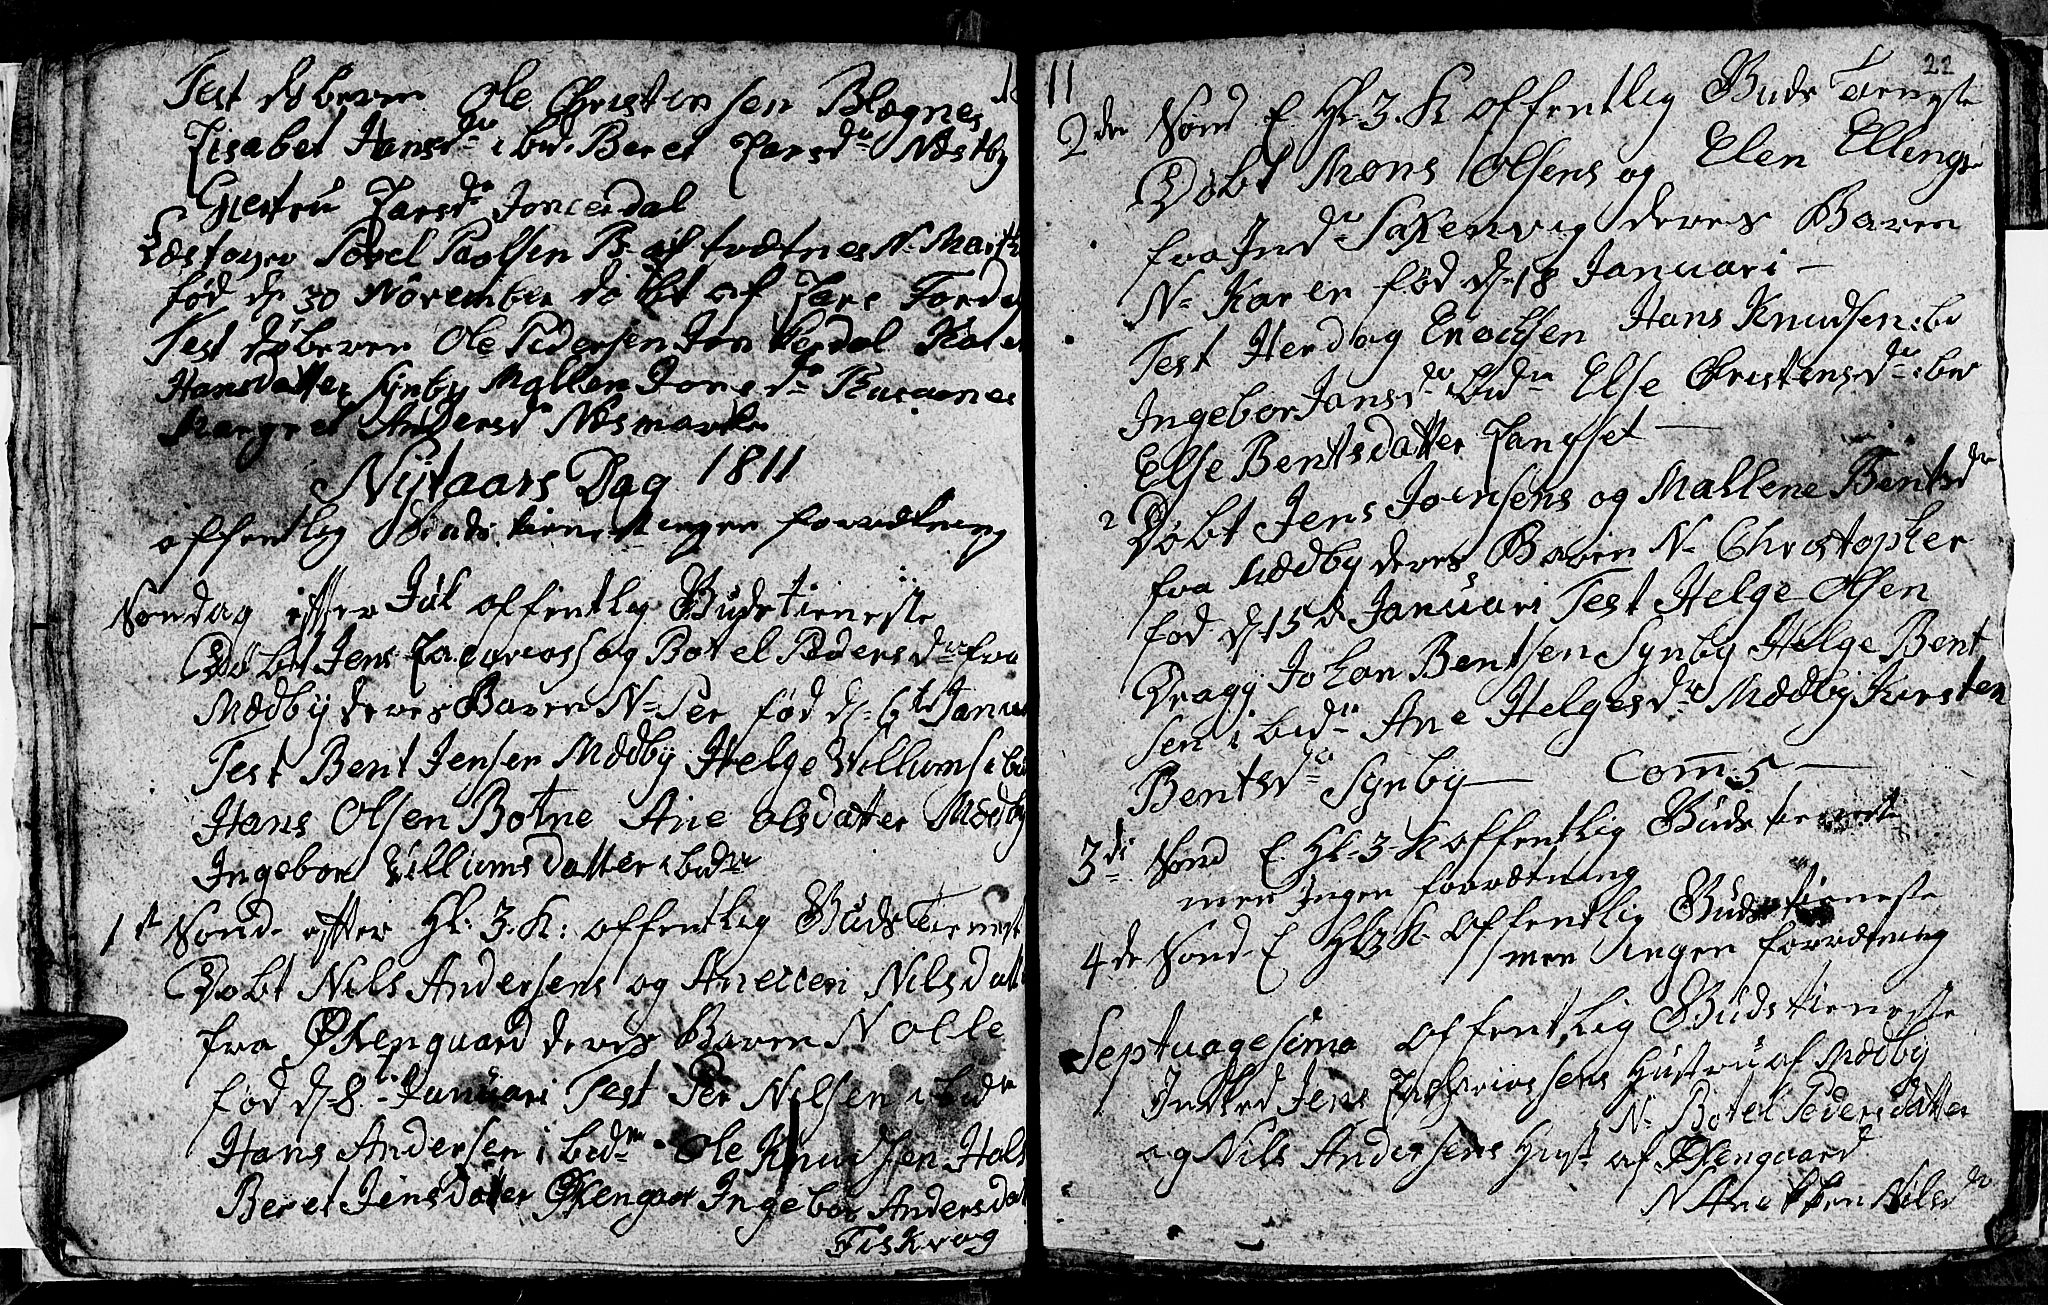 Test døberen Ole Christensen Blægnes
Lisabet Hansd i bd. Beret Larsd Næstby
Giertru Larsd Jonkerdal
Povel Paalsen B. af N. Marth
fød d. 30 November døbt af Lars
Test døberen Ole Pedersen Jonkerdal
Hansdatter Synby Mallen Jonsd
Margret Andersd Næsmark
Nytaars Dag 1811
offentlig Guds tieniste ingen forrætning
Søndag efter Jül offentlig Gudstieneste
Døbt Jens Zacarias og Botel Pedersdr fra
Mædby deres Baren N. Per fød d. 6t Janu
Test Bent Jensen Mædby Helge Willums i bd
Hans Olsen Botne Ane Olsdatter Mædby
Ingebor Villiumsdatter i bidm
1st Sønd. efter Hl. 3. K: offentlig Guds Tienest
Døbt Nils Andersens og Anecken Nilsdatt
fra Øxengaard deres Baren N Olle
fød d. 8. Januari Test Per Nilsen i bidm
Hans Andersen i bidm Ole Knudsen Hals
Beret Jensdatter Øxengaar Ingebor Andersdat
Fiskvag
11
22
2den Sønd E. Hl. 3. K offentlig Guds Tieneste
Døbt Mons Olsens og Elen Ellings
fra Ind Saxenvig deres Baren
N. Karen fød d. 18 Januari
Test Herdog Enochsen Hans Knudsen ibi
Ingebor Jansdr bidm Else Christensdr ibi
Else Bentsdatter Langset
2 Døbt Jens Joensens og Mallene Bentsdr
fra Mædby deres Baren N. Christopher
fød d. 15de Januari Test Helge Olsen
Dragy Johan Bentsen Synby Helge Bent
sen i bidm Ane Helgesdr Mædby Kirsten
Bentsdr Synby Com 5
3di Sønd E. Hl. 3. K offentlig Guds tienest
men Ingen forrætning
4de Sønd E Hl 3 K offentlig Gudstieneste
men ingen forrætning
Septuagesima offentlig Gudstieneste
Indled Jens Zachariassens Hustru af Mædby
N. Botel Pedersdatter
og Nils Andersens Hust af Øxengaard
N Anekken Nilsdr